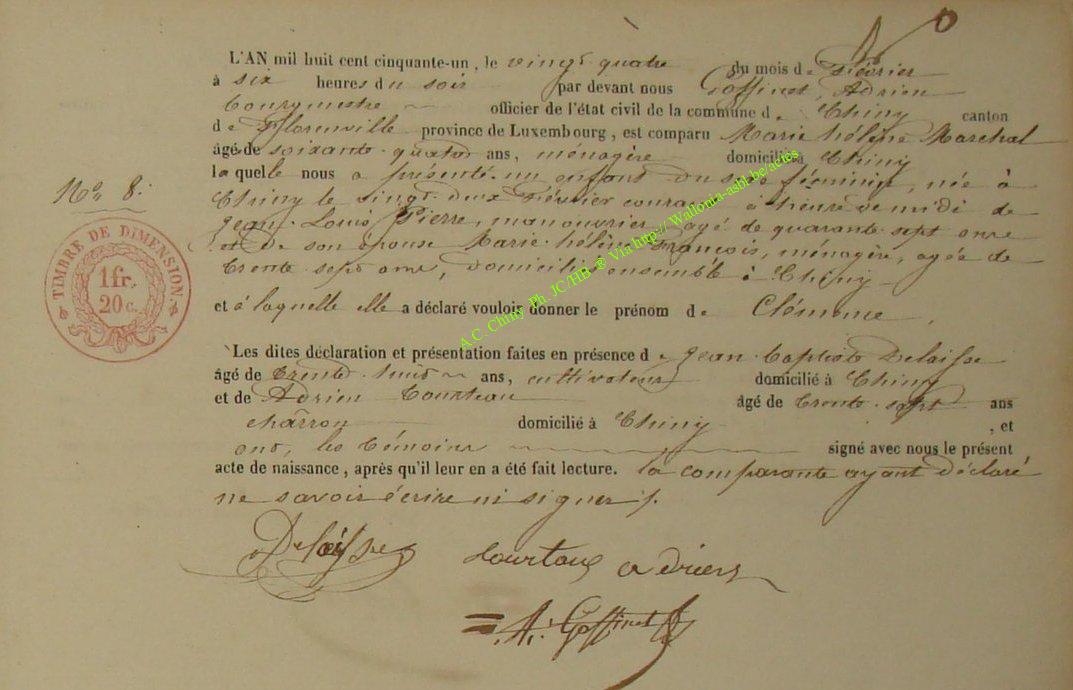 L'AN mil huit cent cinquante-un, le vingt quatre du mois de Février
à six heures du soir par devant nous Goffinet, Adrien
bourgmestre officier de l'état civil de la commune de Chiny canton
de Florenville province de Luxembourg, est comparu Marie hélène Marechal
âgé de soixante-quatre ans, ménagère domicilié à Chiny
laquelle nous a présenté un enfant du sexe féminin, née à
Chiny le vingt deux Février courant à heure de midi de
Jean Louis Pierre, manouvrier, agé de quarante sept ans
et de son épouse Marie hélène François, ménagère, agée de
trente sept ans, domiciliés ensemble à Chiny
et à laquelle elle a déclaré vouloir donner le prénom de Clémence,
Les dites déclaration et présentation faites en présence de Jean Baptiste Delaisse
âgé de trente ans, cultivateur domicilié à Chiny
et de Adrien Courteau âgé de trente-sept ans
charron domicilié à Chiny, et
ont, les témoins signé avec nous le présent
acte de naissance, après qu'il leur en a été fait lecture. la comparante ayant déclaré
ne savoir écrire ni signer ./.
No 8.
TIMBRE DE DIMENSION
1 fr.
20 c.
Delaisse
Courtaux adrien
A. Goffinet
A.C. Chiny Ph. JC/HB @ Via http:// Wallonia-asbl.be/actes